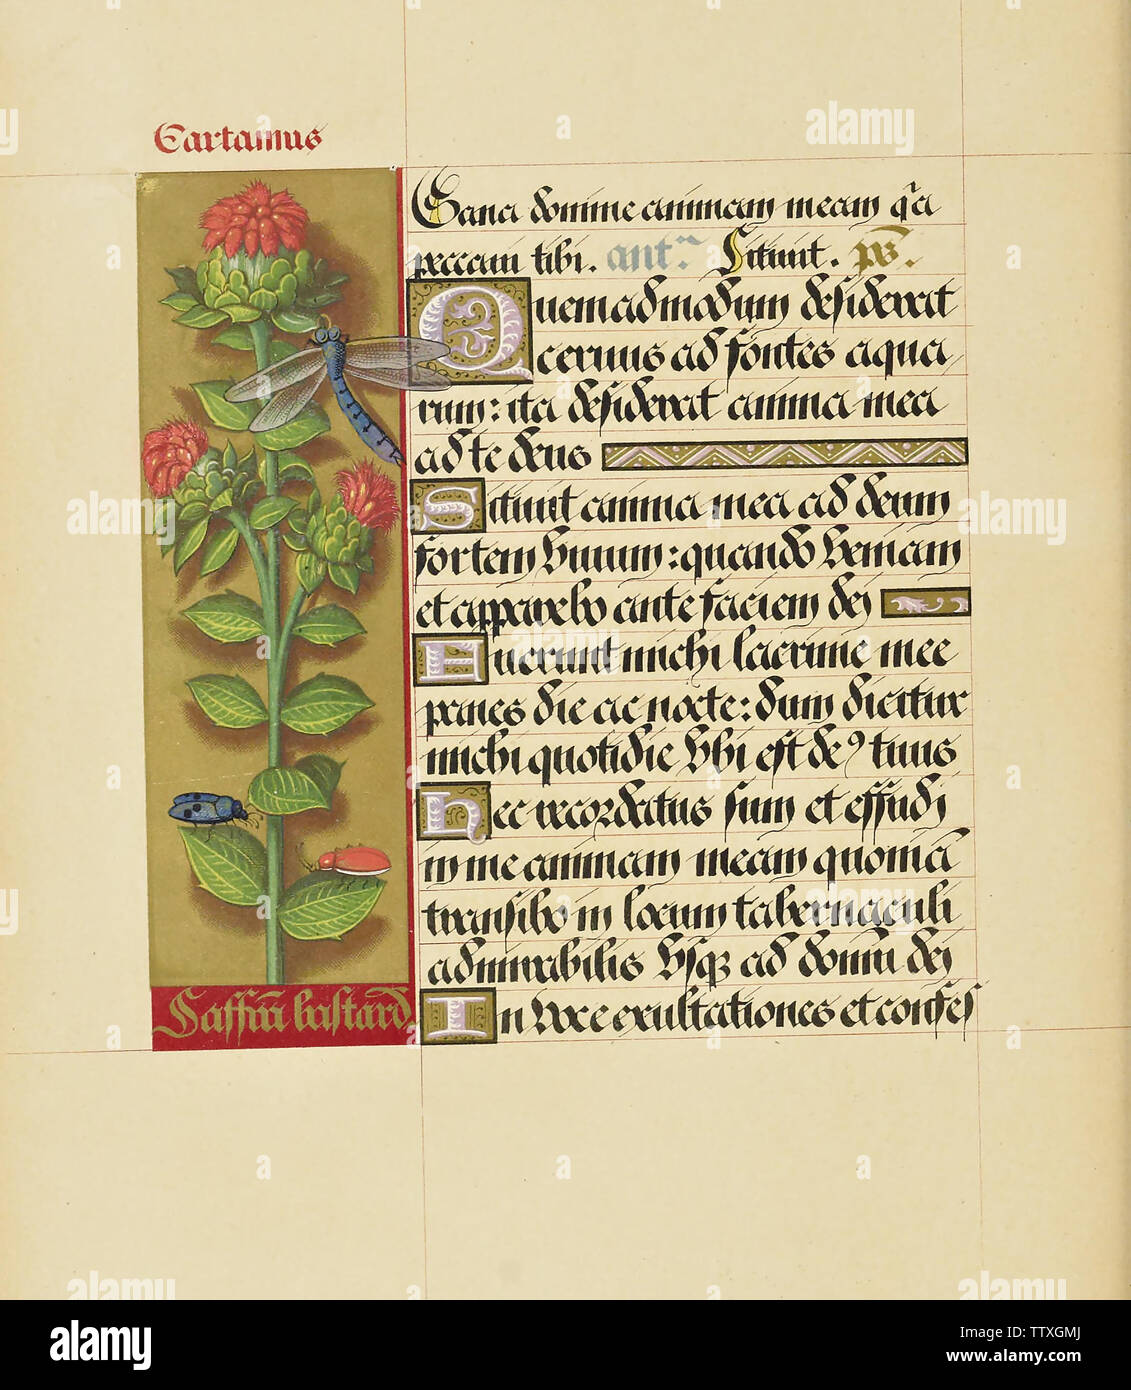 Cartamus
Sana domine animam meam qa
peccaui tibi. ant. Sitiuit. ps.
Quemadmodum desiderat
ceruus ad fontes aqua
rum: ita desiderat anima mea
ad te deus
Sitiuit anima mea ad deum
fortem viuum: quando veniam
et apparebo ante faciem dei
Fuerunt michi lacrime mee
panes die ac nocte: dum dicitur
michi quotidie vbi est de9 tuus
Hec recordatus sum et effudi
in me animam meam quoniā
transibo in locum tabernaculi
admirabilis vsq ad domū dei
In voce exultationes et confes
Saffrā bastard
alamy
Image ID: TTXGMJ
www.alamy.com